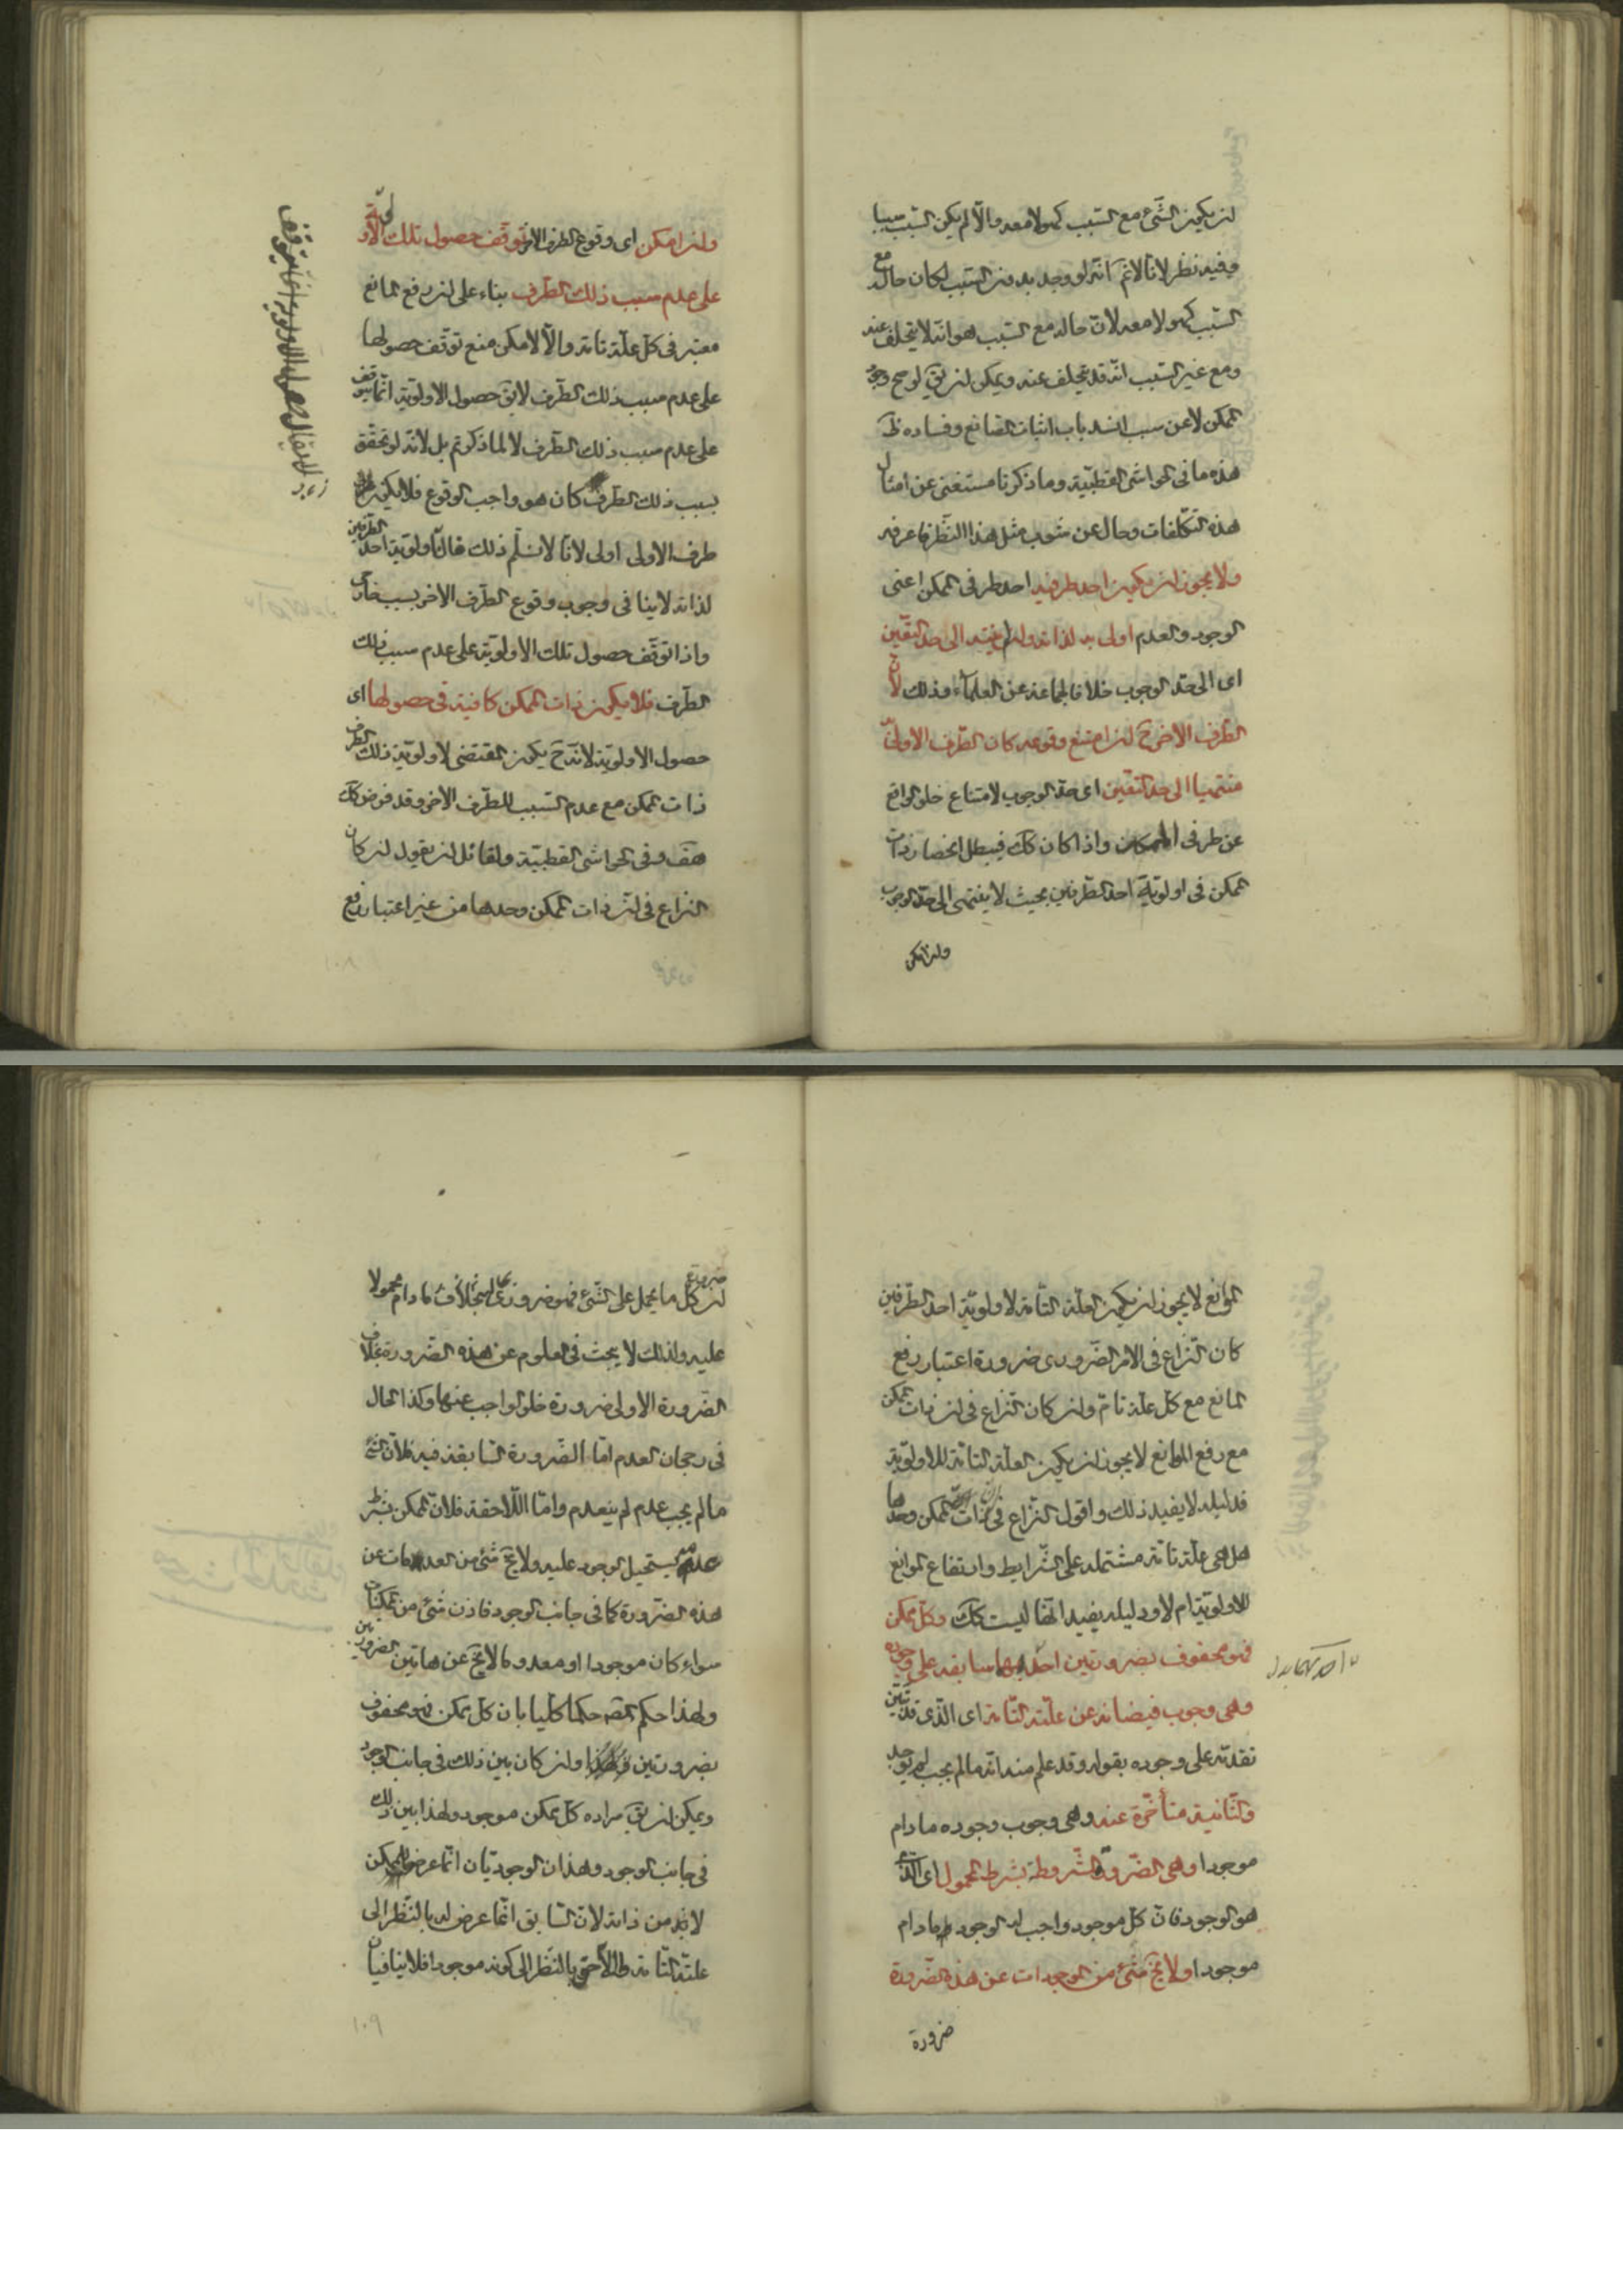 ان يكون الشئ مع السبب كهو لا معه والا لم يكن السبب سببا
وفيه نظر لانا لانم انه لو وجد بدون السبب لكان حاله مع
السبب كهو لا معه لان حاله مع السبب هو انه لا يتخلف عنه
ومع غير السبب انه قد يتخلف عنه ويمكن ان يق لو صح وجود
الممكن لا عن سبب انسد باب اثبات الصانع وفساده ظ
هذه ما فى الحواشى القطبية وما ذكرنا مستغنى عن امثال
هذه التكلفات وخال عن شوب مثل هذا النظر فاعرفه
ولا يجوز ان يكون احد طرفيه احد طرفى الممكن اعنى
الوجود والعدم اولى به لذاته وان لم ينته الى حد التعين
اى الى حد الوجوب خلافا لجماعة من العلماء وذلك لان
الطرف الاخر ح ان امتنع وقوعه كان الطرف الاولى
منتهيا الى حد التعين اى حد الوجوب لامتناع خلو الواقع
عن طرفى الممكن واذا كان كك فيبطل انحصار ذات
الممكن فى اولوية احد الطرفين بحيث لا ينتهى الى حد الوجوب
وان امكن
وان امكن اى وقوع الطرف الاخر توقف حصول تلك الاولوية
على عدم سبب ذلك الطرف بناء على ان رفع المانع
معتبر فى كل علة تامة والا لامكن منع توقف حصولها
على عدم سبب ذلك الطرف لا يق حصول الاولوية انما يتوقف
على عدم سبب ذلك الطرف لا لما ذكرتم بل لانه لو تحقق
سبب ذلك الطرف كان هو واجب الوقوع فلا يكون
طرف الاولى اولى لانا لا نسلم ذلك فان اولوية احد الطرفين
لذاته لا ينافى وجوب وقوع الطرف الاخر بسبب خارجى
واذا توقف حصول تلك الاولوية على عدم سبب ذلك
الطرف فلا يكون ذات الممكن كافية فى حصولها اى
حصول الاولوية لانه ح يكون المقتضى لاولوية ذلك الطرف
ذات الممكن مع عدم السبب للطرف الاخر وقد فرض كك
هف وفى الحواشى القطبية ولقائل ان يقول ان كان
النزاع فى ان ذات الممكن وحدها من غير اعتبار رفع
لا يقال حصول الاولوية انما يتوقف
١٠٨
الموانع لا يجوز ان يكون العلة التامة لاولوية احد الطرفين
كان النزاع فى الامر الضرورى ضرورة اعتبار رفع
المانع مع كل علة تام وان كان النزاع فى ان ذات الممكن
مع رفع الموانع لا يجوز ان يكون العلة التامة للاولوية
فدليله لا يفيد ذلك واقول النزاع فى ان ذات الممكن وحدها
هل هى علة تامة مشتملة على الشرايط وارتفاع الموانع
للاولوية ام لا ودليله يفيد انها ليست كك وكل ممكن
فهو محفوف بضرورتين احديهما سابقة على وجوده
وهى وجوب فيضانه عن علته التامة اى الذى قد تبين
تقدمه على وجوده بقوله وقد علم منه انه ما لم يجب لم يوجد
والثانية متأخرة عنه وهى وجوب وجوده ما دام
موجودا وهى الضرورة المشروطة بشرط المحمول اى الذى
هو الوجود فان كل موجود واجب له الوجود ما دام
موجودا ولا يخ شئ من الموجودات عن هذه الضرورة
ضرورة
ضرورة
ان كل ما يحمل على الشئ فهو ضرورى له ما دام محمولا
عليه ولذلك لا يبحث فى العلوم عن هذه الضرورة بخلاف
الضرورة الاولى ضرورة خلو الواجب عنها وكذا الحال
فى رجحان العدم اما الضرورة السابقة فيه فلان الشئ
ما لم يجب عدمه لم ينعدم واما اللاحقة فلان الممكن بشرط
عدمه يستحيل الوجود عليه ولا يخ شئ من العدمات عن
هذه الضرورة كما فى جانب الوجود فاذن شئ من الممكنات
سواء كان موجودا او معدوما لا يخ عن هاتين الضرورتين
ولهذا حكم المصه حكما كليا بان كل ممكن فهو محفوف
بضرورتين وان كان بين ذلك فى جانب الوجود
ويمكن ان يق مراده كل ممكن موجود ولهذا بين ذلك
فى جانب الوجود وهذان الوجوديان انما عرضا للممكن
لا من ذاته لان السابق انما عرض له بالنظر الى
علته التامة واللاحق بالنظر الى كونه موجودا فلا ينافيان
١٠٩